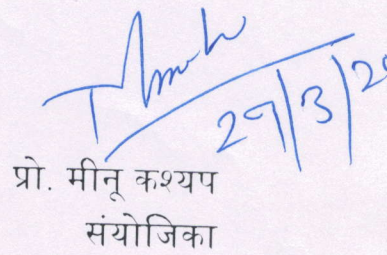 29/3/2
प्रो. मीनू कश्यप
संयोजिका